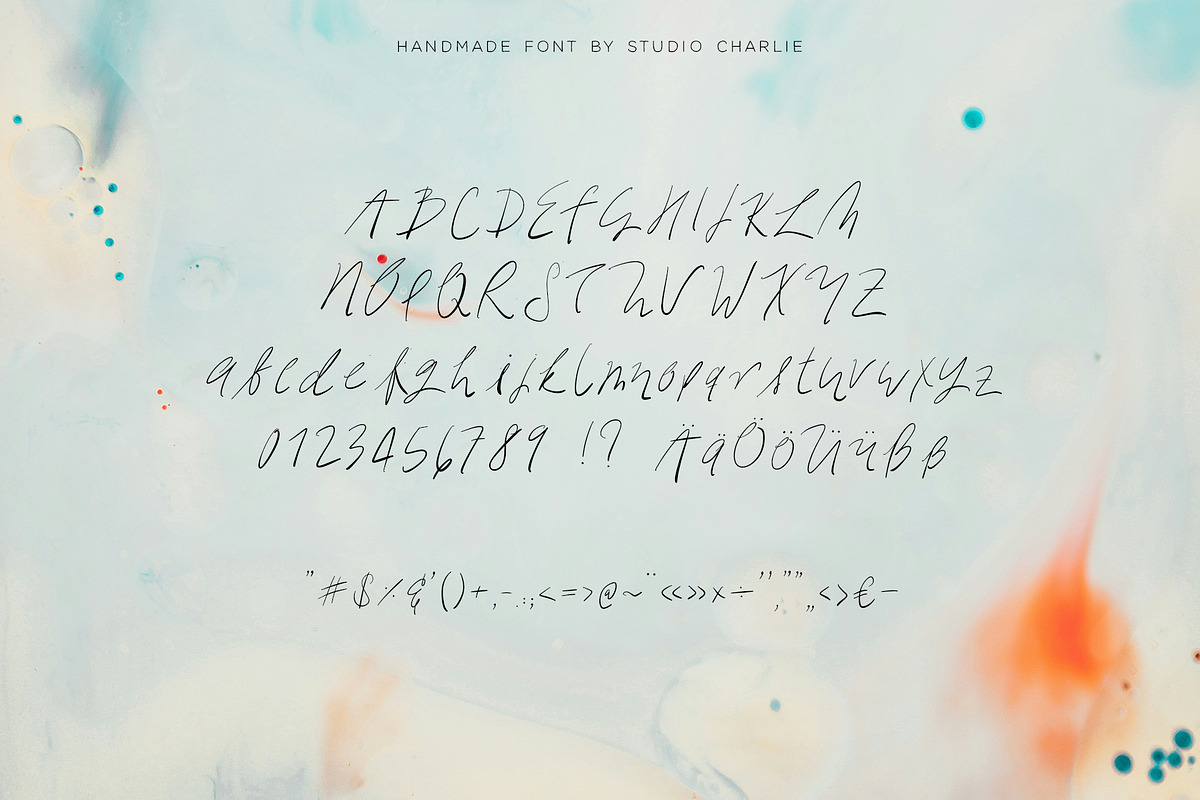 HANDMADE FONT BY STUDIO CHARLIE
ABCDEFGHIJKLM
NOPQRSTUVWXYZ
abcdefghijklmnopqrstuvwxyz
0123456789 !? ÄäÖöÜüßß
"#$%&'()+,-.:;<=>@~¨«»×÷‘’‚“”„<>€–